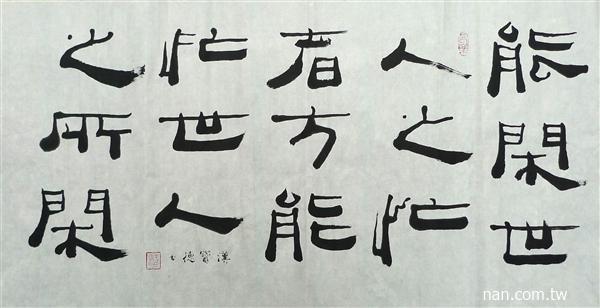 能閑世
人之忙
者方能
忙世人
之所閑
漢寶德
nan.com.tw